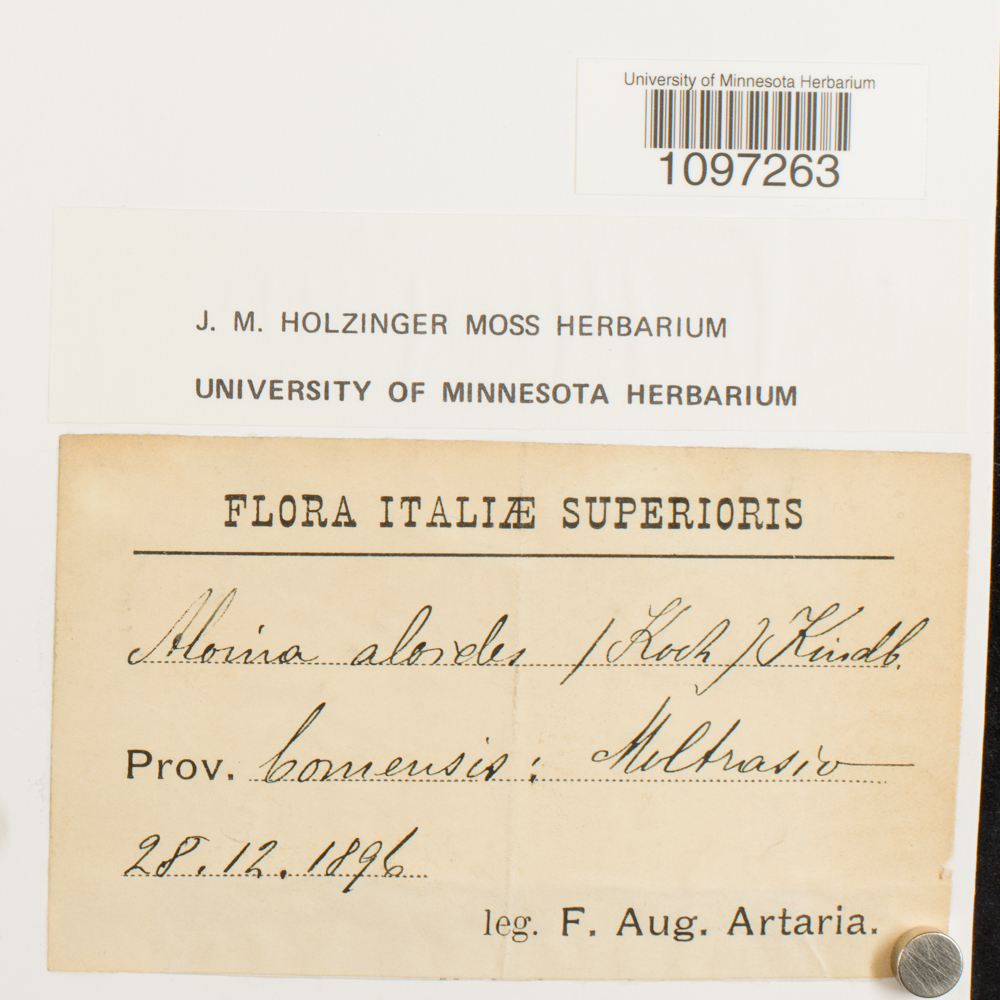 University of Minnesota Herbarium
1097263
J. M. HOLZINGER MOSS HERBARIUM
UNIVERSITY OF MINNESOTA HERBARIUM
FLORA ITALIÆ SUPERIORIS
Aloina aloides (Koch) Kindb.
Prov. Comensis: Moltrasio
28.12.1896
leg. F. Aug. Artaria.